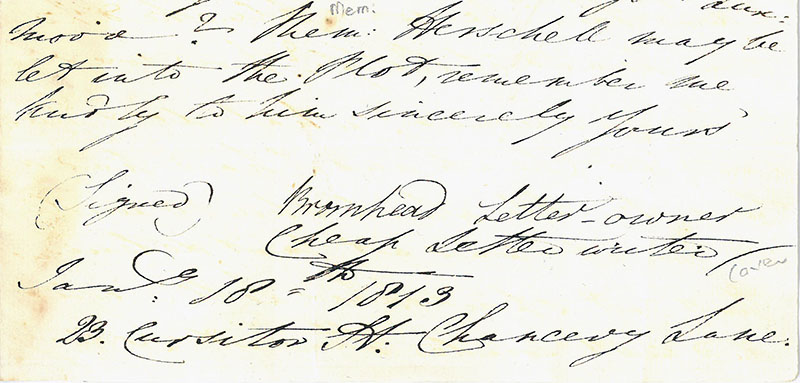 Mem:
aux:
mood? Mem: Herschell may be
let into the Plot, remember me
kindly to him sincerely yours
(Signed) Bromhead Letter-owner
Cheap Letter writer/
(over
Jany. 18th 1813
23. Cursitor St. Chancery Lane.